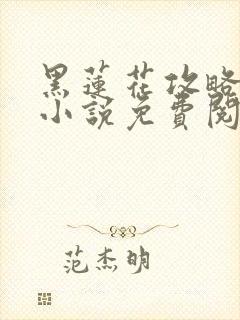 黑莲花攻略
小說免費閱
范杰明